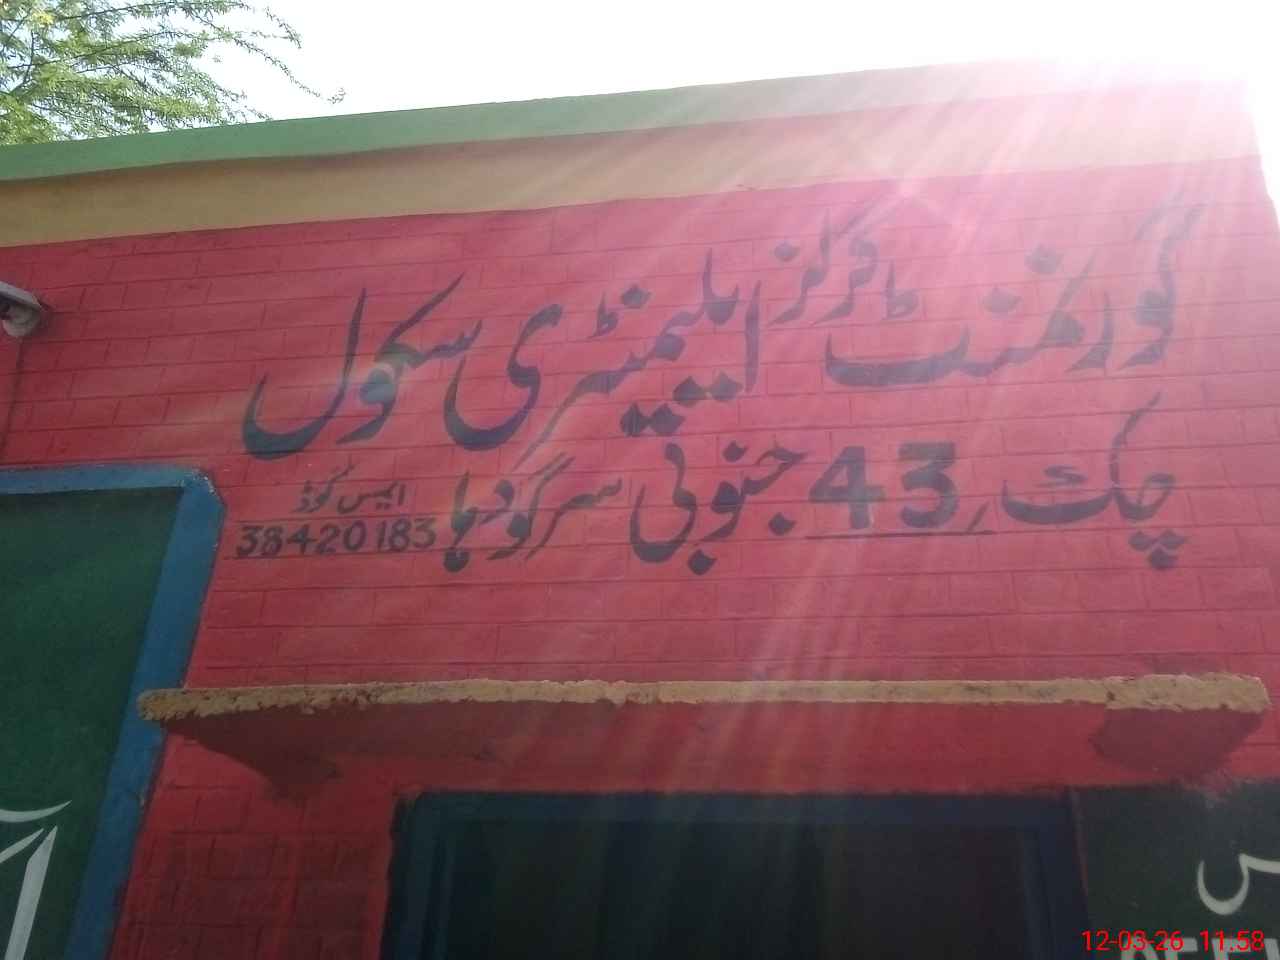 گورنمنٹ گرلز ایلیمنٹری سکول
چک / 43 جنوبی سرگودہا
کوڈ
38420183
12-03-26 11:58